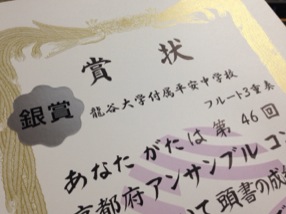 賞状
銀賞
龍谷大学付属平安中学校
フルート3重奏
あなたがたは第46回
京都府アンサンブルコン
て頭書の成績